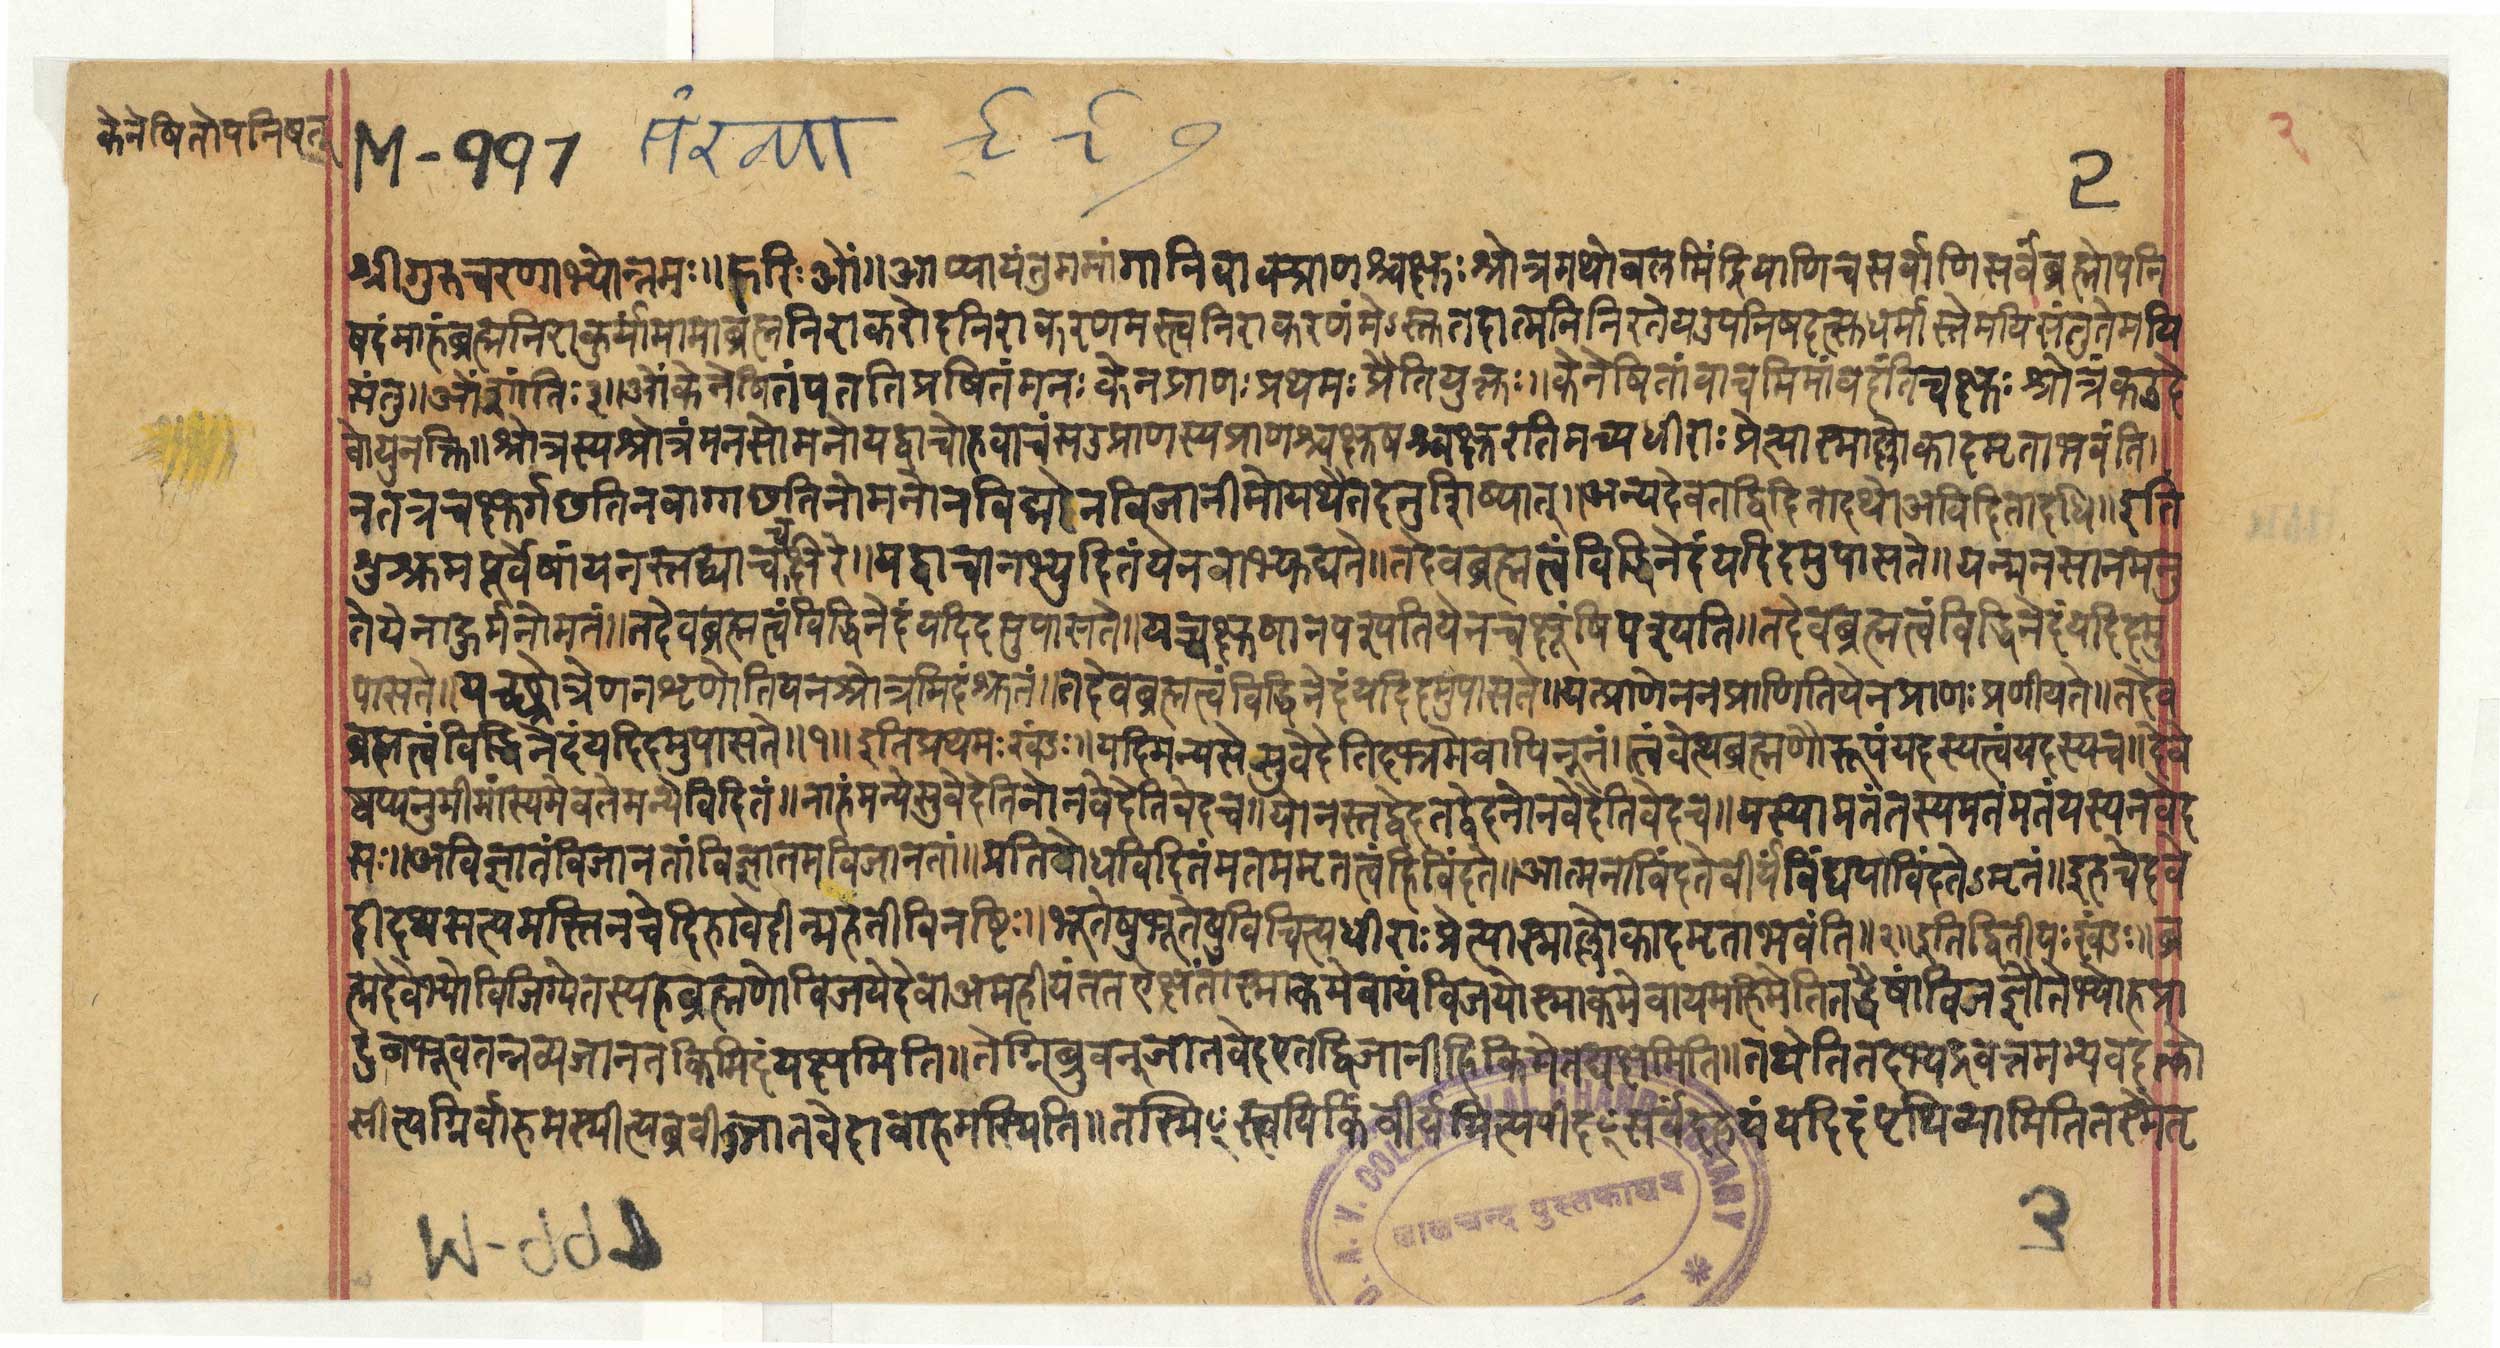 केनेषितोपनिषत्
M-997
संख्या ९९७
२
२
श्रीगुरुचरणाभ्योन्नमः॥हरिःओं॥आप्यायंतुममांगानिवाक्प्राणश्चक्षुःश्रोत्रमथोबलमिंद्रियाणिचसर्वाणिसर्वंब्रह्मोपनि
षदंमाहंब्रह्मनिराकुर्यांमामाब्रह्मनिराकरोदनिराकरणमस्त्वनिराकरणंमेऽस्तुतदात्मनिनिरतेयउपनिषदत्सुधर्मास्तेमयिसंतुतेमयि
संतु॥ओंशांतिः३॥ओंकेनेषितंपततिप्रषितंमनःकेनप्राणःप्रथमःप्रैतियुक्तः॥केनेषितांवाचमिमांवदंतिचक्षुःश्रोत्रंकउदे
वोयुनक्ति॥श्रोत्रस्यश्रोत्रंमनसोमनोयद्वाचोहवाचंसउप्राणस्यप्राणश्चक्षुषश्चक्षुरतिमच्यधीराःप्रेत्यास्माल्लोकादमृताभवंति।
नतत्रचक्षुर्गछतिनवाग्गछतिनोमनोनविद्मोनविजानीमोयथैतदनुशिष्यात्॥अन्यदेवतद्विदितादथोअविदितादधि॥इति
शुश्रुमपूर्वेषांयेनस्तद्याचचक्षीरे॥यद्वाचानभ्युदितंयेनवाभ्युद्यते॥तदेवब्रह्मत्वंविद्धिनेदंयदिदमुपासते॥यन्मनसानमनु
तेयेनाहुर्मनोमतं॥तदेवब्रह्मत्वंविद्धिनेदंयदिदमुपासते॥यच्चक्षुषानपश्यतियेनचक्षूंषिपश्यति॥तदेवब्रह्मत्वंविद्धिनेदंयदिदमु
पासते॥यच्छ्रोत्रेणनशृणोतियेनश्रोत्रमिदंश्रुतं॥तदेवब्रह्मत्वंविद्धिनेदंयदिदमुपासते॥यत्प्राणेननप्राणितियेनप्राणःप्रणीयते॥तदेव
ब्रह्मत्वंविद्धिनेदंयदिदमुपासते॥१॥इतिप्रथमःखंडः॥यदिमन्यसेसुवेदेतिदभ्रमेवापिनूनं।त्वंवेत्थब्रह्मणोरूपंयदस्यत्वंयदस्यच॥देवे
ष्वप्यनुमीमांस्यमेवतेमन्येविदितं॥नाहंमन्येसुवेदेतिनोनवेदेतिवेदच॥योनस्तद्वेदतद्वेदनोनवेदेतिवेदच॥यस्यामतंतस्यमतंमतंयस्यनवेद
सः॥अविज्ञातंविजानतांविज्ञातमविजानतां॥प्रतिबोधविदितंमतममृतत्वंहिविंदते॥आत्मनाविंदतेवीर्यंविद्ययाविंदतेऽमृतं॥इहचेदवे
दीदथसत्यमस्तिनचेदिहावेदीन्महतीविनष्टिः॥भूतेषुभूतेषुविचित्यधीराःप्रेत्यास्माल्लोकादमृताभवंति॥२॥इतिद्वितीयःखंडः॥ब्र
ह्मदेवेभ्योविजिग्येतस्यहब्रह्मणोविजयेदेवाअमहीयंततऐक्षंतास्माकमेवायंविजयोस्माकमेवायमहिमेतितद्धैषांविजज्ञौतेभ्योहप्रा
दुर्बभूवतन्नव्यजानतकिमिदंयक्षमिति॥तेग्निमब्रुवन्जातवेदएतद्विजानीहिकिमेतद्यक्षमिति॥तथेतितदभ्यद्रवत्तमभ्यवदत्को
सीत्यग्निर्वाहमस्मीत्यब्रवीज्जातवेदावाहमस्मिति॥तस्मिꣳस्त्वयिकिंवीर्यमित्यपीदꣳसर्वंदहेयंयदिदंपृथिव्यामितितस्मैतृ
M-997
३
D.A.V. COLLEGE LALCHAND LIBRARY
लालचन्द पुस्तकालय